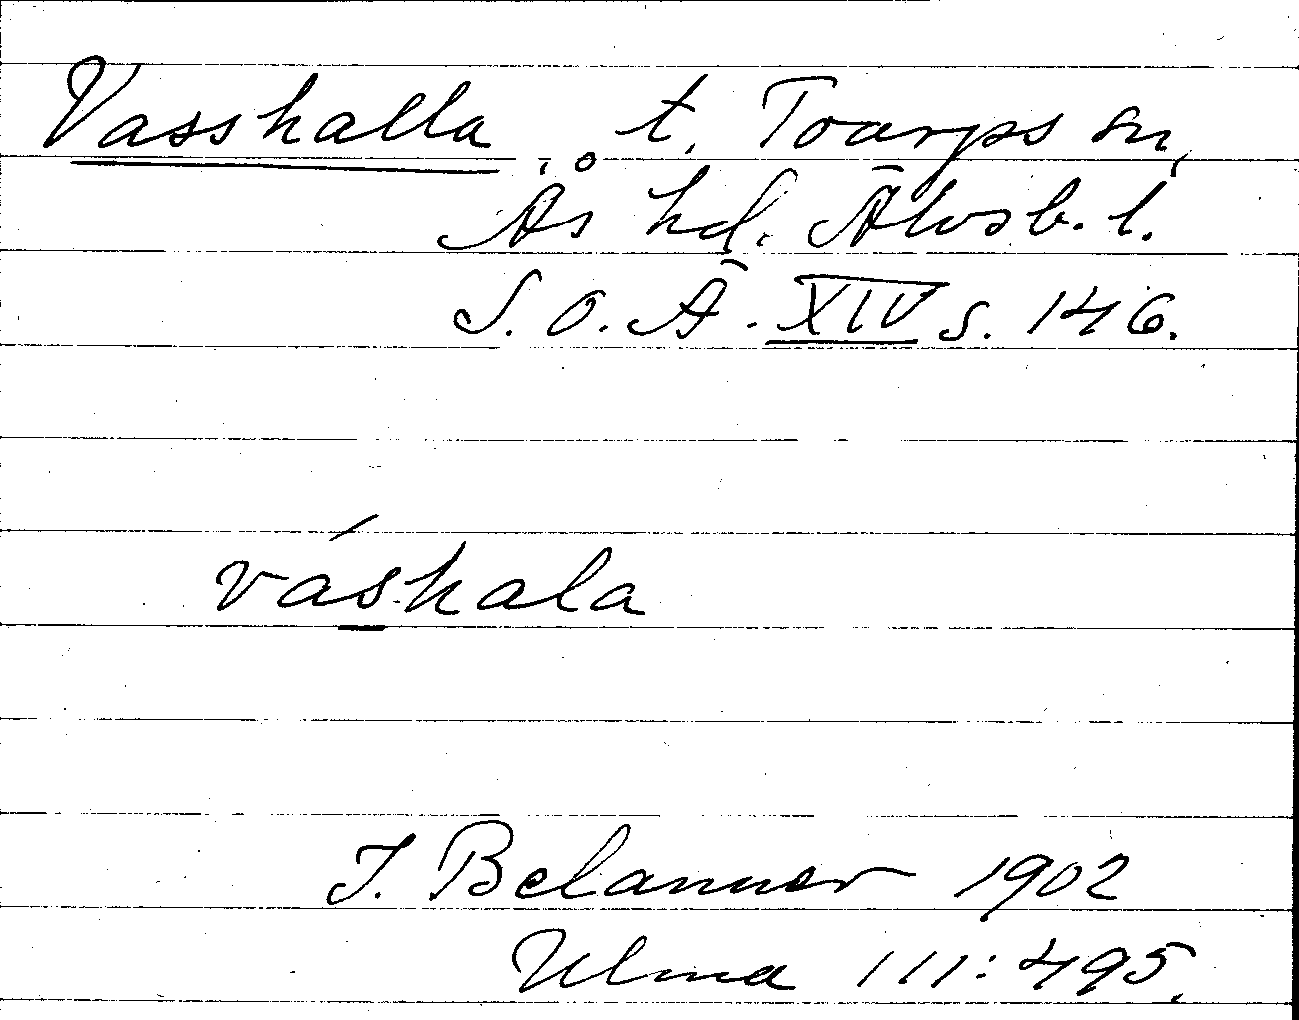 Vasshalla t. Toarps sn,
Ås hd. Älvsb. l.
S. O. Ä. XIV s. 146.
váshala
J. Belanner 1902
Ulma 111:495.